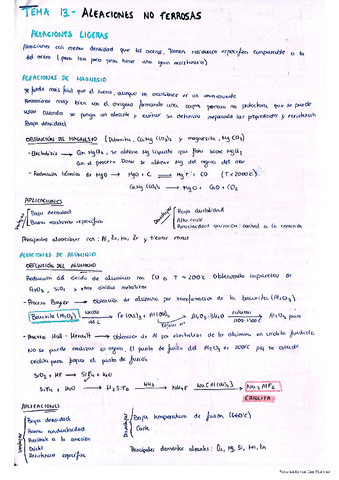 TEMA 13 - ALEACIONES NO FERROSAS
ALEACIONES LIGERAS
Aleaciones con menor densidad que los aceros. Tienen resistencia específica comparable a la
del acero (pero tan poco peso tiene una gran resistencia)
ALEACIONES DE MAGNESIO
Se funde más fácil que el hierro, aunque en ocasiones es un inconveniente
Reacciona muy bien con el oxígeno formando una capa porosa no protectora que se puede
Baja densidad
OBTENCIÓN DEL MAGNESIO (Dolomita, CaMg(CO3)2 y magnesita, MgCO3)
- Electrólisis → Con MgCl2, se obtiene Mg líquido que flota sobre MgCl2
se obtiene Mg del agua del mar
- Reducción térmica de MgO → MgO + C ⇌ Mg↑ + CO (T<2000ºC)
CaMg(CO3)2 → MgO + CaO + CO2
APLICACIONES
Baja densidad
Buena resistencia específica
Baja ductilidad
Alto coste
Reactividad química: control a la corrosión
Principales aleaciones con: Al, Zn, Mn, Zr y tierras raras
ALEACIONES DE ALUMINIO
OBTENCIÓN DEL ALUMINIO
Reducción del óxido de aluminio con CO a T≈200ºC. Obteniendo impurezas de
Fe2O3, SiO2 y otros óxidos metálicos
- Proceso Bayer → Obtención de alúmina por transformación de la bauxita (Al2O3)
Bauxita (Al2O3) → Fe(OH)3 + Al(OH)3 → Al2O3·3H2O → Al2O3 puro
- Proceso Hall-Heroult → Obtención de Al por electrólisis de la alúmina en criolita fundida.
No se puede realizar en agua. El punto de fusión del Al2O3 es 200ºC
criolita para bajar el punto de fusión
SiO2 + HF → SiF4 + H2O
SiF4 + H2O → H2SiF6 → NH4F → Na3AlF6
CRIOLITA
APLICACIONES
Baja densidad
Buena conductividad
Resistente a la corrosión
Dúctil
Resistencia específica
Baja temperatura de fusión (660ºC)
Coste
Principales elementos aleantes: Cu, Mg, Si, Mn, Zn